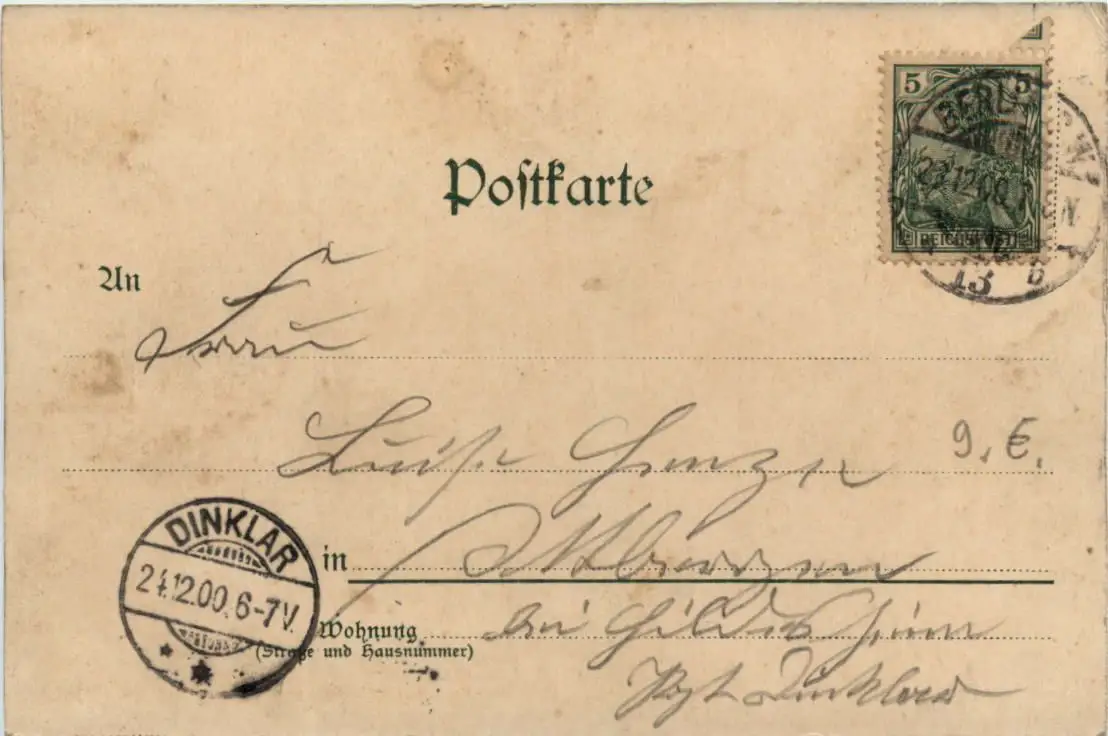 5 5
REICHSPOST
BERLIN W
23.12.00.
13 b
Postkarte
An
Frau
Luise
9.€.
in
bei Hildesheim
Wohnung
(Straße und Hausnummer)
Post Dinklar
DINKLAR
24.12.00. 6-7V.